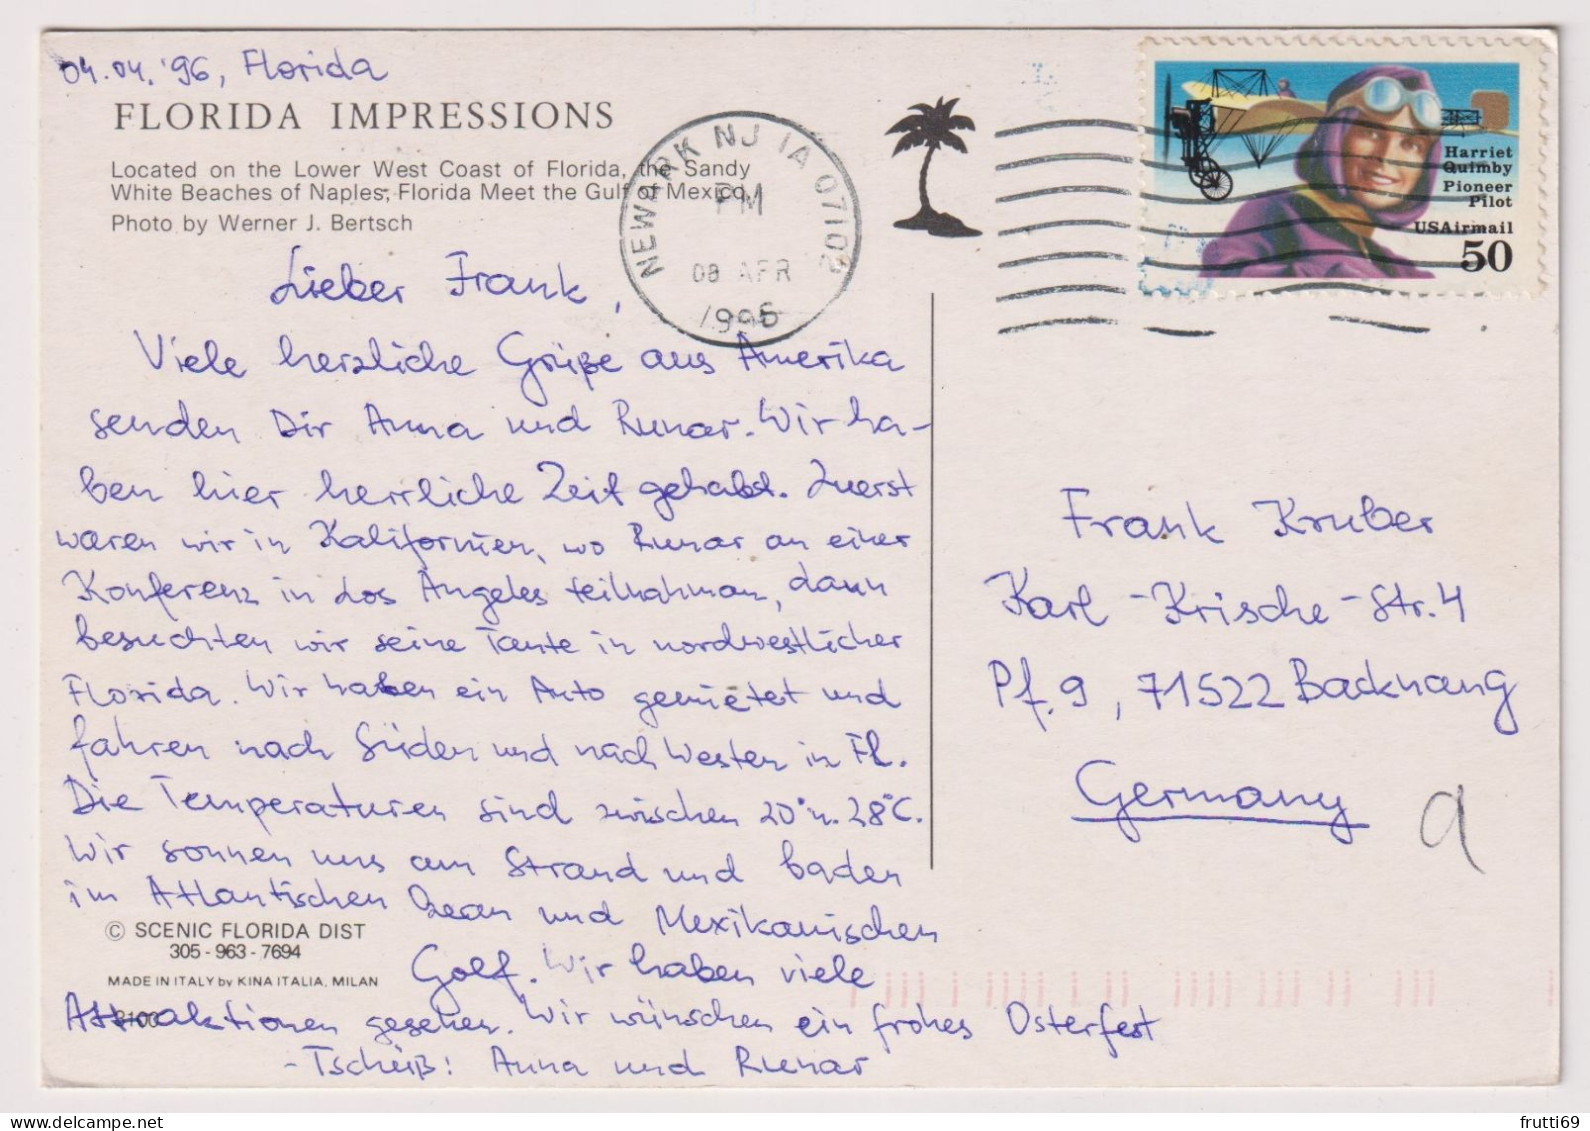 04.04.'96, Florida
FLORIDA IMPRESSIONS
Located on the Lower West Coast of Florida, the Sandy
White Beaches of Naples, Florida Meet the Gulf of Mexico.
Photo by Werner J. Bertsch
NEWARK NJ IA 07102
PM
08 APR
1996
Harriet
Quimby
Pioneer
Pilot
USAirmail
50
Lieber Frank,
Viele herzliche Grüße aus Amerika
senden Dir Anna und Runar. Wir ha-
ben hier herrliche Zeit gehabt. Zuerst
waren wir in Kalifornien, wo Runar an einer
Konferenz in Los Angeles teilnahman, dann
besuchten wir seine Tante in nordwestlicher
Florida. Wir haben ein Auto gemietet und
fahren nach Süden und nach Westen in Fl.
Die Temperaturen sind zwischen 20° u. 28°C.
Wir sonnen uns am Strand und baden
im Atlantischen Ozean und Mexikanischen
Golf. Wir haben viele
Attraktionen gesehen. Wir wünschen ein frohes Osterfest
- Tschüß: Anna und Runar
© SCENIC FLORIDA DIST
305-963-7694
MADE IN ITALY by KINA ITALIA, MILAN
Frank Kruber
Karl-Krische-Str. 4
Pf. 9, 71522 Backnang
Germany
a
frutti69